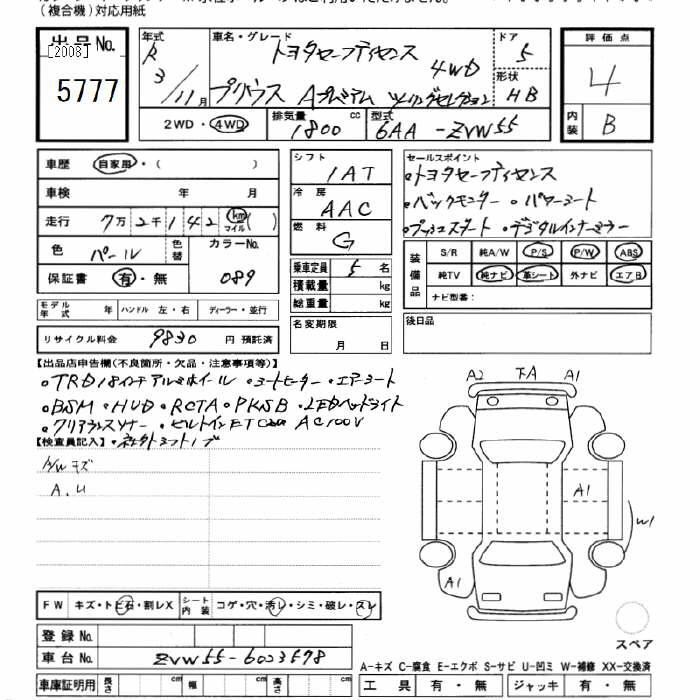 (複合機)対応用紙
出品No. [2008] 5777
年式 R3/11月 車名・グレード トヨタセーフティセンス 4WD プリウス Aプレミアム ツーリングセレクション
ドア 5 形状 HB
2WD・4WD 排気量 1800 cc 型式 6AA-ZVW55
評価点 4
内装 B
車歴 自家用・( )
車検 年 月
走行 7万2千142 km マイル ( )
色 パール 色替 カラーNo. 089
保証書 有・無
モデル年式 年 ハンドル 左・右 ディーラー・並行
リサイクル料金 9830 円 預託済
シフト 1AT
冷房 AAC
燃料 G
乗車定員 5 名
積載量 kg
総重量 kg
名変期限 月 日
セールスポイント
・トヨタセーフティセンス
・バックモニター ・パワーシート
・プッシュスタート ・デジタルインナーミラー
装備品 S/R 純A/W P/S P/W ABS
純TV 純ナビ 革シート 外ナビ エアB
ナビ型番:
後日品
【出品店申告欄(不良箇所・欠品・注意事項等)】
・TRD18インチアルミホイール ・シートヒーター ・エアーシート
・BSM ・HUD ・RCTA ・PKSB ・LEDヘッドライト
・クリアランスソナー ・ビルトインETC AC100V
【検査員記入】 ・社外シフトノブ
A/W キズ
A.U
A2 下A A1
A1
W1
A1
スペア
FW キズ・トビ石・割レX シート内装 コゲ・穴・汚レ・シミ・破レ・スレ
登録No.
車台No. ZVW55-6003578
車庫証明用 長さ cm 幅 cm 高さ cm
A-キズ C-腐食 E-エクボ S-サビ U-凹ミ W-補修 XX-交換済
工具 有・無 ジャッキ 有・無